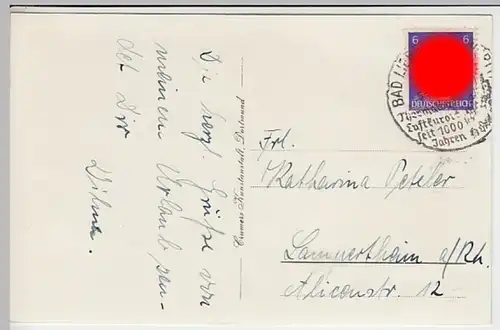 Die herzl. Grüße von
meinem Urlaub sen-
det Dir
Cramers Kunstanstalt Dortmund
6 6
DEUTSCHES REICH
BAD
Luftkurort
seit 1000
Jahren
Frl.
Katharina
Lampertheim a/Rh.
Alicenstr. 12